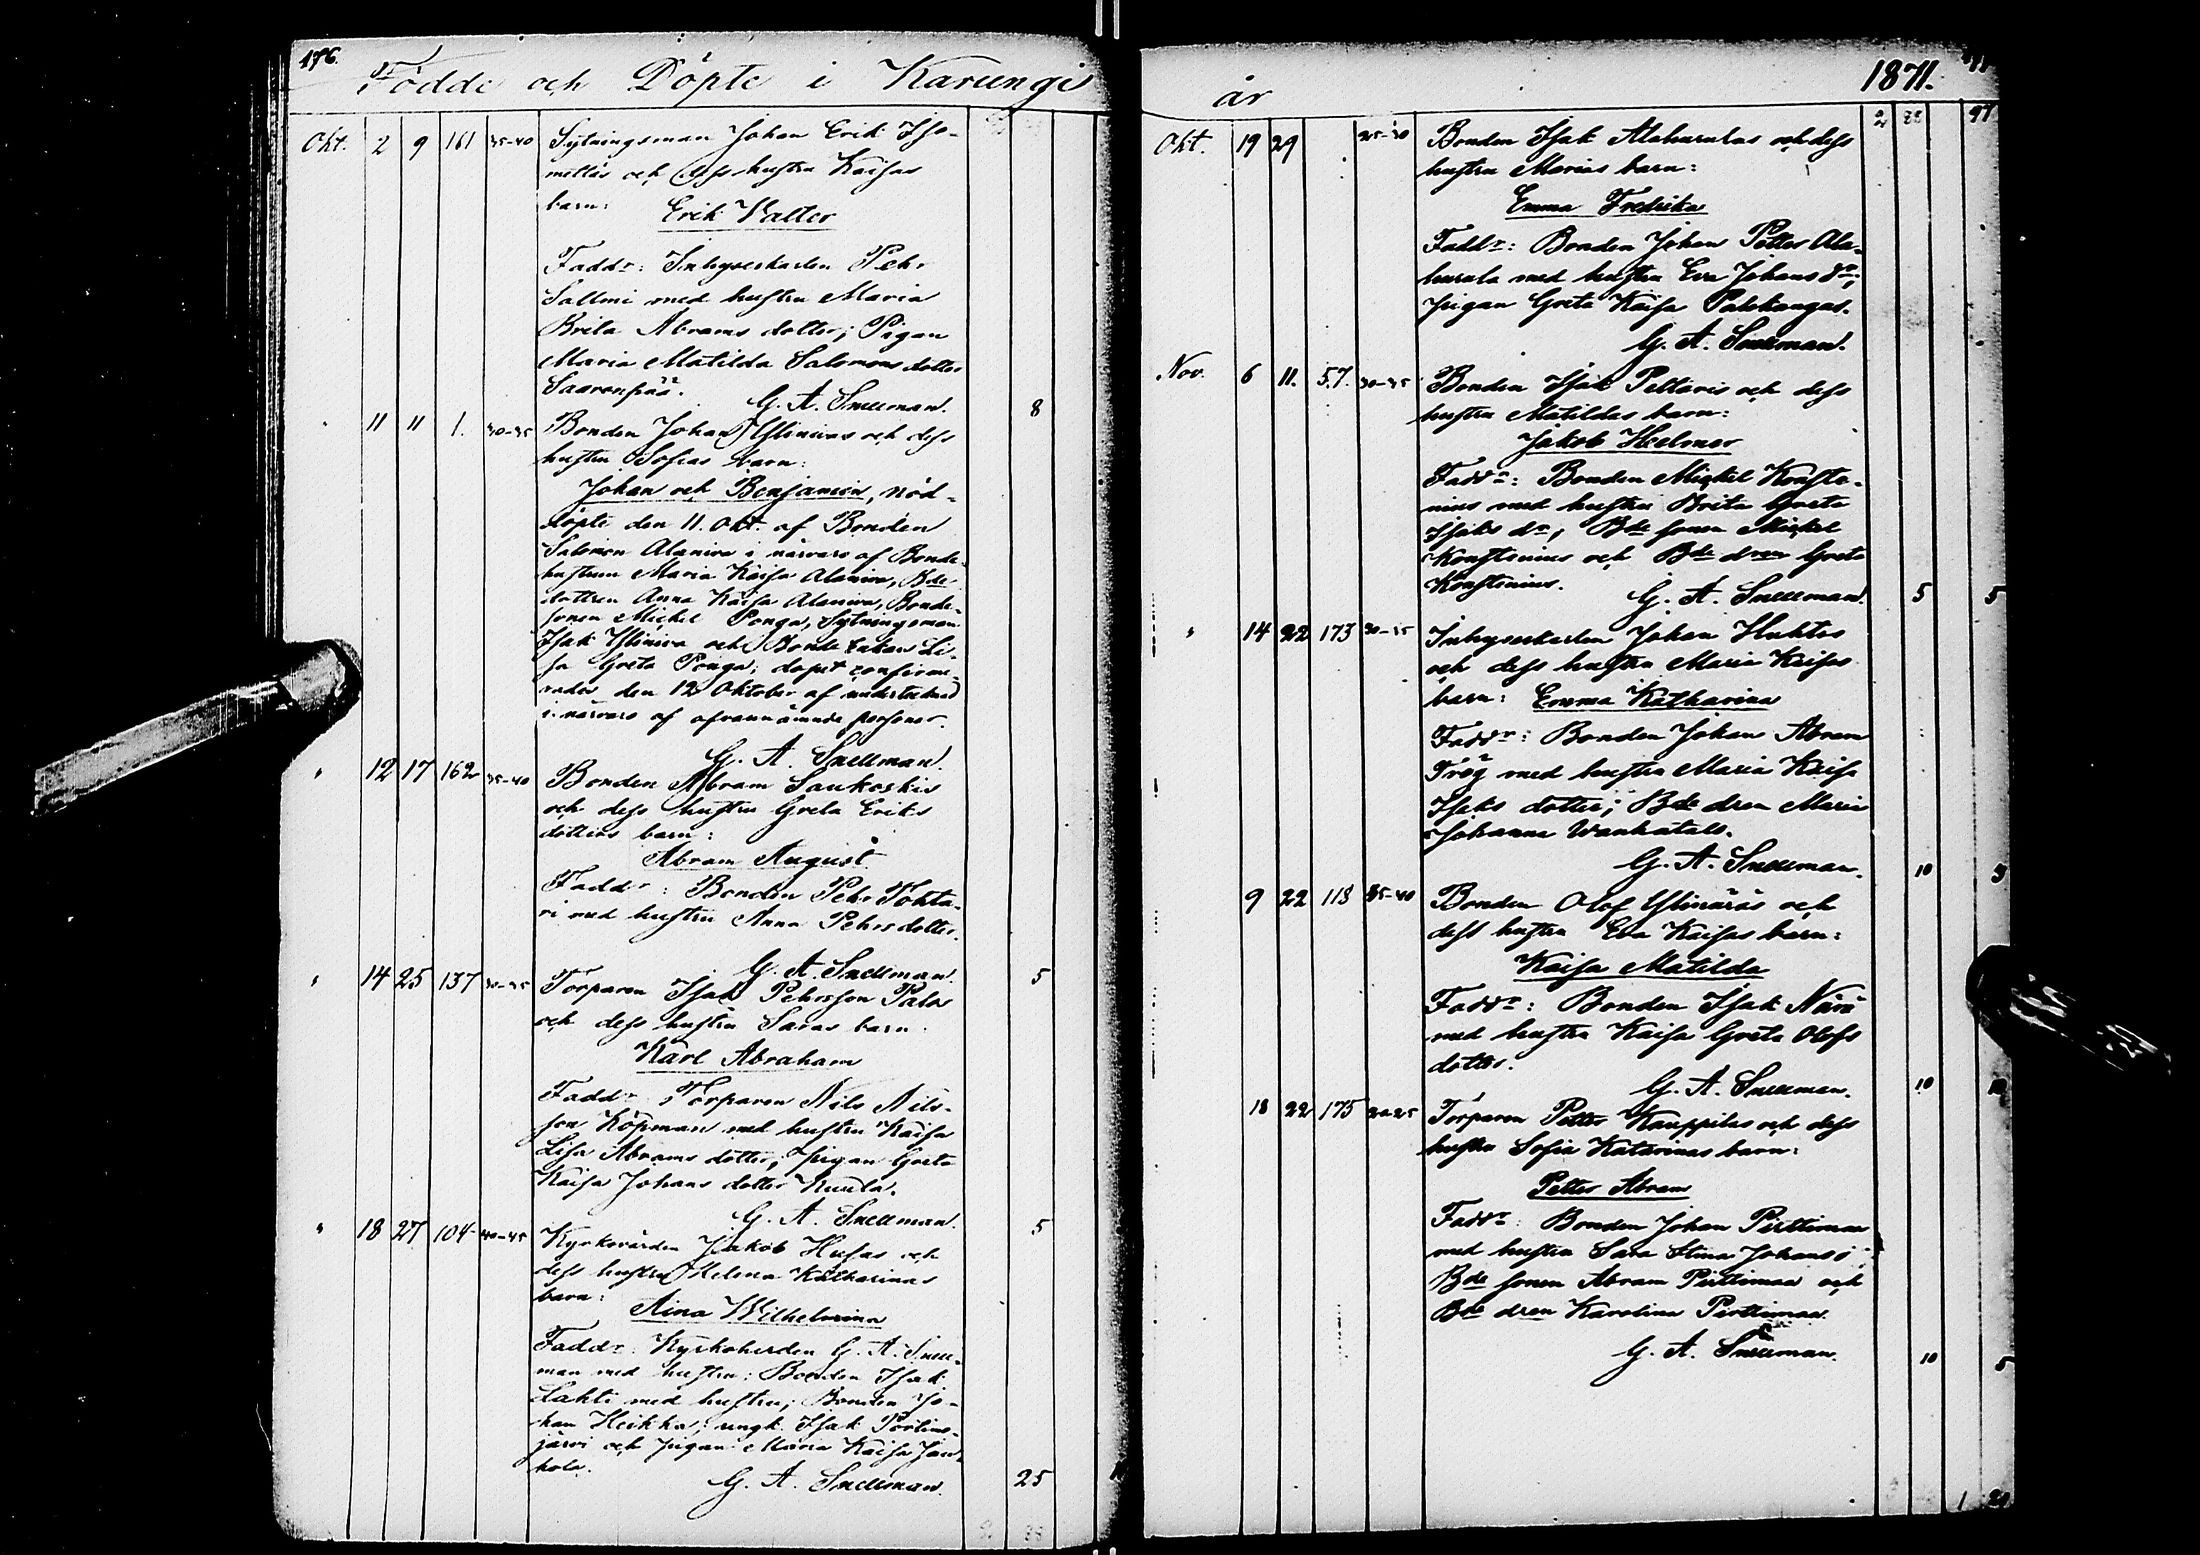 196.
Födde och Döpte i Karungi
Okt. 2 9 161 35-40 Sytningsman Johan Erik Iso-
mettäs och dess hustru Kaisas
barn: Erik Valter
Faddr: Inhyseskarlen Pehr
Sallmi med hustru Maria
Brita Abrams dotter; Pigan
Maria Matilda Salomons dotter
Saaronpää.
G. A. Snellman. 8
" 11 11 1. 30-35 Bonden Johan Ylinivas och dess
hustru Sofias barn:
Johan och Benjamin, nöd-
döpte den 11. Okt. af Bonden
Salomon Alaniva i närvaro af Bonde-
hustrun Maria Kaisa Alaniva, Bde
dottren Anna Kaisa Alaniva, Bonde-
sonen Mickel Ponga, Sytningsman
Isak Yliniva och Bonde Enkan Li-
sa Greta Ponga; dopet confirme-
rades den 12 Oktober af undertecknad
i närvaro af ofvannämnde personer.
G. A. Snellman.
" 12 17 162 35-40 Bonden Abram Saukoskis
och dess hustru Greta Eriks
dotters barn:
Abram August
Faddr: Bonden Pehr Tohta-
ri med hustru Anna Pehrs dotter.
G. A. Snellman. 5
" 14 25 137 30-35 Torparen Isak Pehrsson Palos
och dess hustru Saras barn
Karl Abraham
Faddr Torparen Nils Nils-
son Köpman med hustru Kaisa
Lisa Abrams dotter; pigan Greta
Kaisa Johans dotter Kuula.
G. A. Snellman. 5
" 18 27 104 40-45 Kyrkovärden Jakob Husas och
dess hustru Helena Katharinas
barn: Aina Wilhelmina
Faddr: Kyrkoherden G. A. Snell-
man med hustru; Bonden Isak
Lahti med hustru; Bonden Jo-
han Heikka; ungk. Isak Portimo-
järvi och pigan Maria Kaisa Jun-
kola.
G. A. Snellman. 25
år 1871.
2 97
Okt. 19 29 25-30 Bonden Isak Alahurulas och dess
hustru Marias barn:
Emma Fredrika
Faddr: Bonden Johan Petter Ala-
hurula med hustru Eva Johans dr;
pigan Greta Kaisa Palokangas.
G. A. Snellman.
Nov. 6 11. 57. 30-35 Bonden Isak Peltaris och dess
hustru Matildas barn:
Jakob Helmer
Faddr: Bonden Mickel Konste-
nius med hustru Brita Greta
Isaks dr, Bde sonen Mickel
Konstenius och Bde dren Greta
Konstenius.
G. A. Snellman. 5 5
" 14 22 173 30-35 Inhyseskarlen Johan Huhtas
och dess hustru Maria Kaisas
barn: Emma Katharina
Faddr: Bonden Johan Abram
Trög med hustru Maria Kaisa
Isaks dotter; Bde dren Maria
Johanna Wanhatalo.
G. A. Snellman. 10 5
9 22 118 35-40 Bonden Olof Ylinäräs och
dess hustru Eva Kaisas barn:
Kaisa Matilda
Faddr: Bonden Isak Närä
med hustru Kaisa Greta Olofs
dotter.
G. A. Snellman. 10
18 22 175 20-25 Torparen Petter Kauppilas och dess
hustru Sofia Katarinas barn:
Petter Abram
Faddr: Bonden Johan Perttiman
med hustru Sara Stina Johans
Bde sonen Abram Perttiman och
Bde dren Karolina Perttiman
G. A. Snellman. 10 5